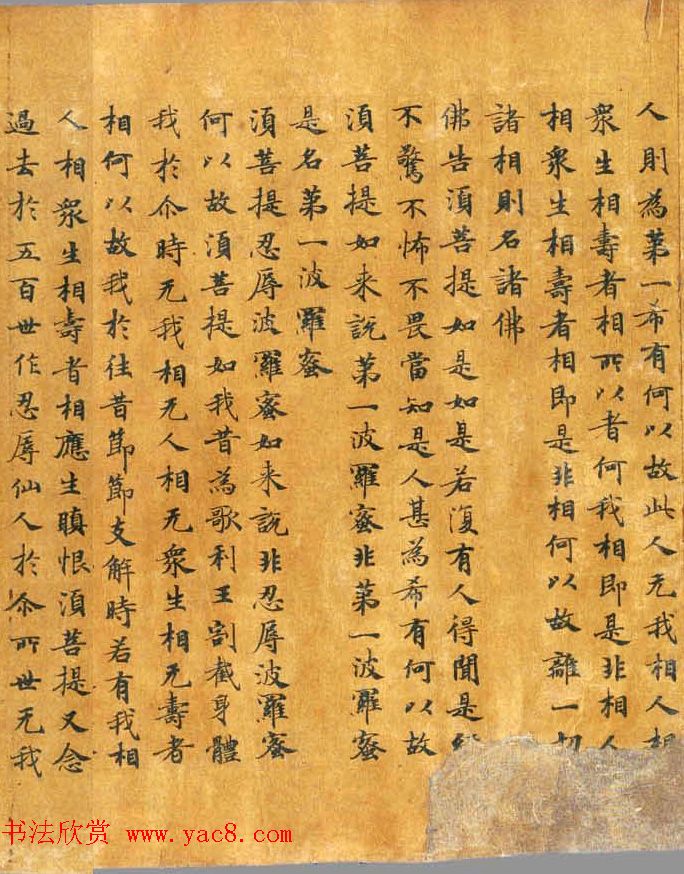 人則為第一希有何以故此人无我相人相
衆生相壽者相所以者何我相即是非相人
相衆生相壽者相即是非相何以故離一切
諸相則名諸佛
佛告湏菩提如是如是若復有人得聞是經
不驚不怖不畏當知是人甚為希有何以故
湏菩提如来說第一波羅蜜非第一波羅蜜
是名第一波羅蜜
湏菩提忍辱波羅蜜如来說非忍辱波羅蜜
何以故湏菩提如我昔為歌利王割截身體
我於尒時无我相无人相无衆生相无壽者
相何以故我於往昔節節支解時若有我相
人相衆生相壽者相應生瞋恨湏菩提又念
過去於五百世作忍辱仙人於尒所世无我
书法欣赏 www.yac8.com